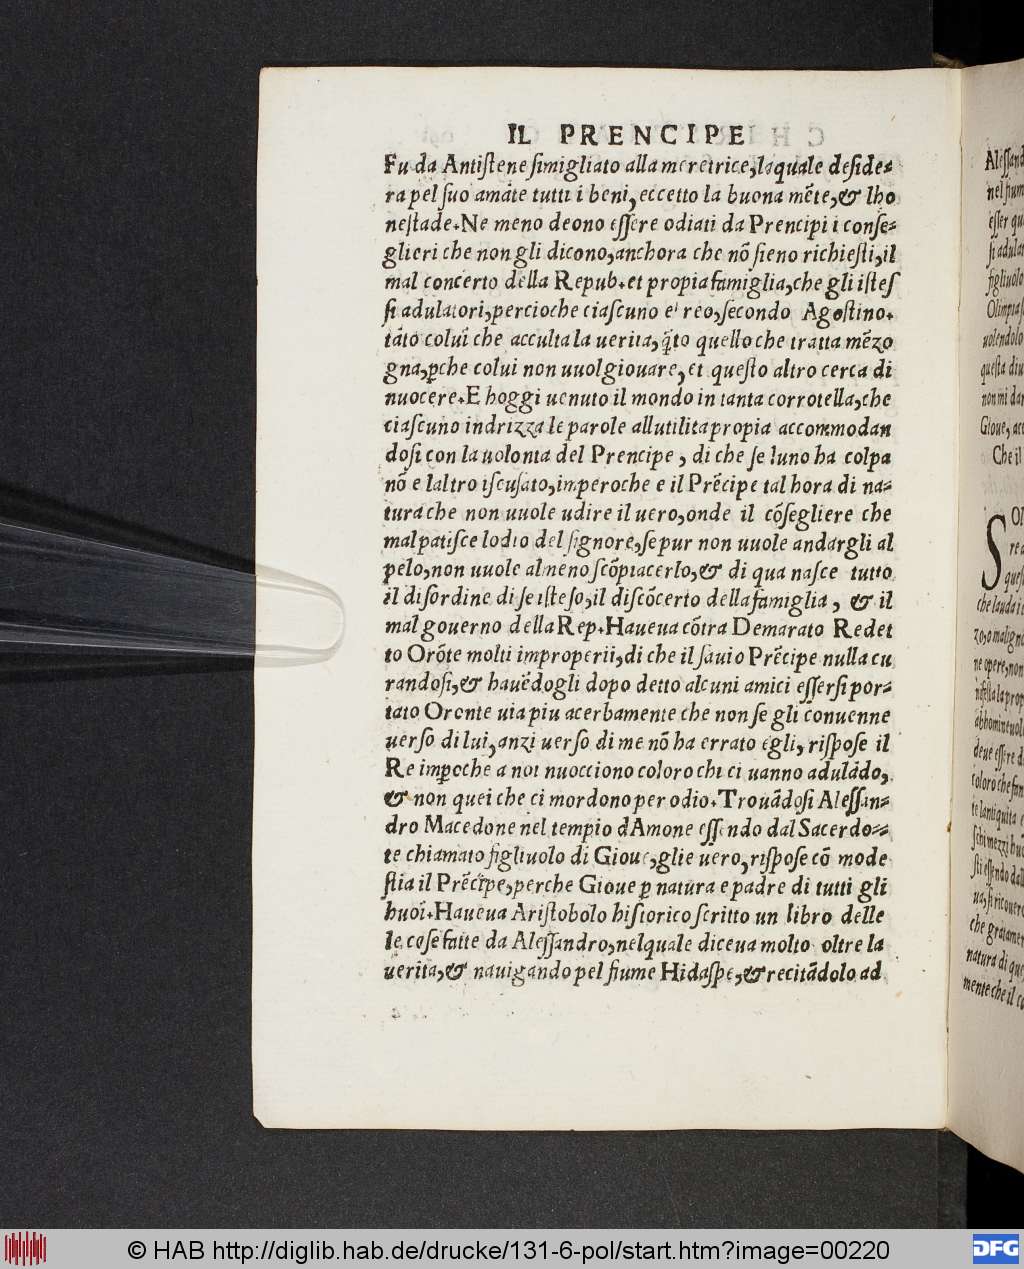 IL PRENCIPE
Fu da Antiſtene ſimigliato alla meretrice, laquale deſide-
ra pel ſuo amāte tutti i beni, eccetto la buona mēte, & lho
neſtade. Ne meno deono eſſere odiati da Prencipi i conſe-
glieri che non gli dicono, anchora che nō ſieno richieſti, il
mal concerto della Repub. et propia famiglia, che gli iſteſ
ſi adulatori, percioche ciaſcuno e reo, ſecondo Agoſtino.
tāto colui che acculta la uerita, q̄to quello che tratta mēzo
gna, ꝑche colui non uuol giouare, et queſto altro cerca di
nuocere. E hoggi uenuto il mondo in tanta corrotella, che
ciaſcuno indrizza le parole all utilita propia accommodan
doſi con la uolonta del Prencipe, di che ſe luno ha colpa
nō e laltro iſcuſato, imperoche e il Prēcipe tal hora di na-
tura che non uuole udire il uero, onde il cōſegliere che
mal patiſce lodio del ſignore, ſe pur non uuole andargli al
pelo, non uuole almeno ſcōpiacerlo, & di qua naſce tutto
il diſordine di ſe iſteſo, il diſcōcerto della famiglia, & il
mal gouerno della Rep. Haueua cōtra Demarato Redet
to Orōte molti improperii, di che il ſauio Prēcipe nulla cu
randoſi, & hauēdogli dopo detto alcuni amici eſſerſi por-
tato Oronte uia piu acerbamente che non ſe gli conuenne
uerſo di lui, anzi uerſo di me nō ha errato egli, riſpoſe il
Re imꝑoche a noi nuocciono coloro chi ci uanno adulādo,
& non quei che ci mordono per odio. Trouādoſi Aleſſan-
dro Macedone nel tempio dAmone eſſendo dal Sacerdo-
te chiamato figliuolo di Gioue, glie uero, riſpoſe cō mode
ſtia il Prēcipe, perche Gioue ꝑ natura e padre di tutti gli
huoī. Haueua Ariſtobolo hiſtorico ſcritto un libro delle
le coſe fatte da Aleſſandro, nelquale diceua molto oltre la
uerita, & nauigando pel fiume Hidaſpe, & recitādolo ad
Aleſſand
nel fium
eſſer qu
ſi adular
figliuolo
Olimpia
uolendolo
queſta diu
non mi dar
Gioue, acc
Che il
che lauda i
zo, o maligno
ne opere, non
abhomineuol
deue eſſere d
coloro che fan
te lantiquita
ſchi mezzi huo
ſti eſſendo dal
ua, ſi ricouer
che gratamen
natura di que
mente che il co
© HAB http://diglib.hab.de/drucke/131-6-pol/start.htm?image=00220
DFG